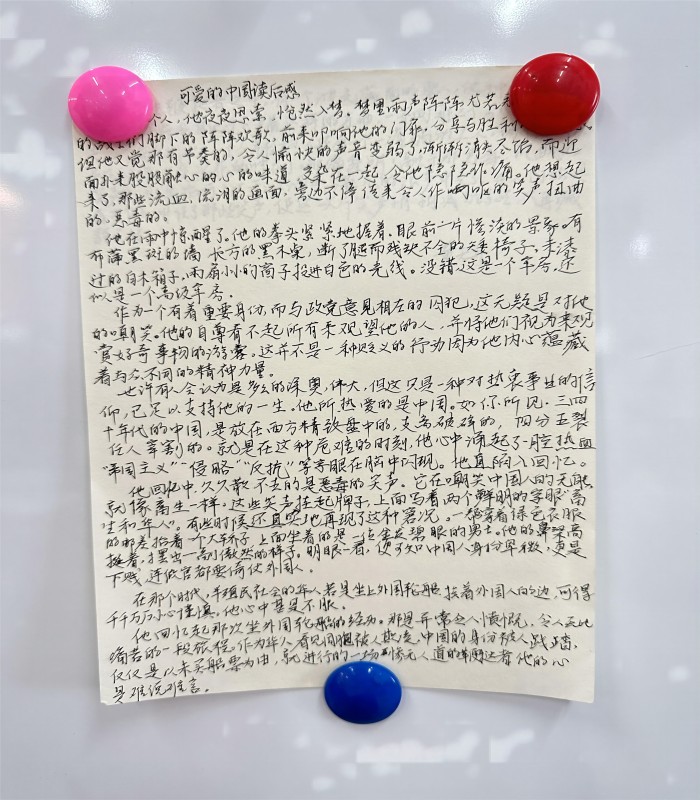 可爱的中国读后感
个人，他夜夜思索，恍然入梦。梦里雨声阵阵尤若
的战士们脚下的阵阵欢歌，前来叩响他的门扉，分享与胜利
但他又觉那有节奏的，令人愉快的声音变弱了，渐渐消失殆尽，而迎
面扑来股股的心的味道，交织在一起，令他隐隐作痛。他想起
来了，那些流血，流泪的画面，旁边不停传来令人作呕的笑声扭曲
的，恶毒的。
他在雨中惊醒了。他的拳头紧紧地握着。眼前一片惨淡的景象。有
布满黑斑的墙 长方的黑木桌，断了腿而残缺不全的矮椅子，未漆
过的白木箱子，两扇小的窗子投进白色的光线。没错，这是一个牢房，还
似是一个高级牢房。
作为一个有着重要身份，而与政党意见相左的囚犯，这无疑是对他
的嘲笑。他的自尊看不起所有来观望他的人，并将他们视为来观
赏好奇事物的游客，这并不是一种贬义的行为因为他内心蕴藏
着与众不同的精神力量。
也许有人会认为是多么的深奥，伟大，但这只是一种对热衷事业的信
仰，已足以支持他的一生。他所热爱的是中国。如你所见，三四
十年代的中国，是放在西方精致盘中的，支离破碎的，四分五裂
任人宰割的。就是在这种危难的时刻，他心中涌起了一腔热血
“帝国主义”“侵略”“反抗”等字眼在脑中闪现。他直陷入回忆。
他回忆中，久久散不去的是恶毒的笑声。它在嘲笑中国人的无能
就像畜生一样。这些笑声挂起牌子，上面写着两个鲜明的字眼“畜
生和华人”。有些时候还真实地再现了这种窘况。一群穿着绿色衣服
的邮差抬着一个大轿子，上面坐着的是一位金发碧眼的男士。他的鼻梁高
挺着，摆出一副傲然的样子。明眼一看，便可知中国人身份卑微，更是
下贱 连做官都要倚仗外国人。
在那个时代，半殖民社会的华人若是坐上外国轮船 挨着外国人的边，可得
千万万小心谨慎。他心中甚是不服。
他回忆起那次坐外国轮船的经历。那是异常令人愤慨，令人无比
痛苦的一段旅程。作为华人 看见同胞被人欺凌，中国的身份被人践踏，
仅仅是以未买船票为由，就进行的一场惨无人道的 他的心
是难说难言。